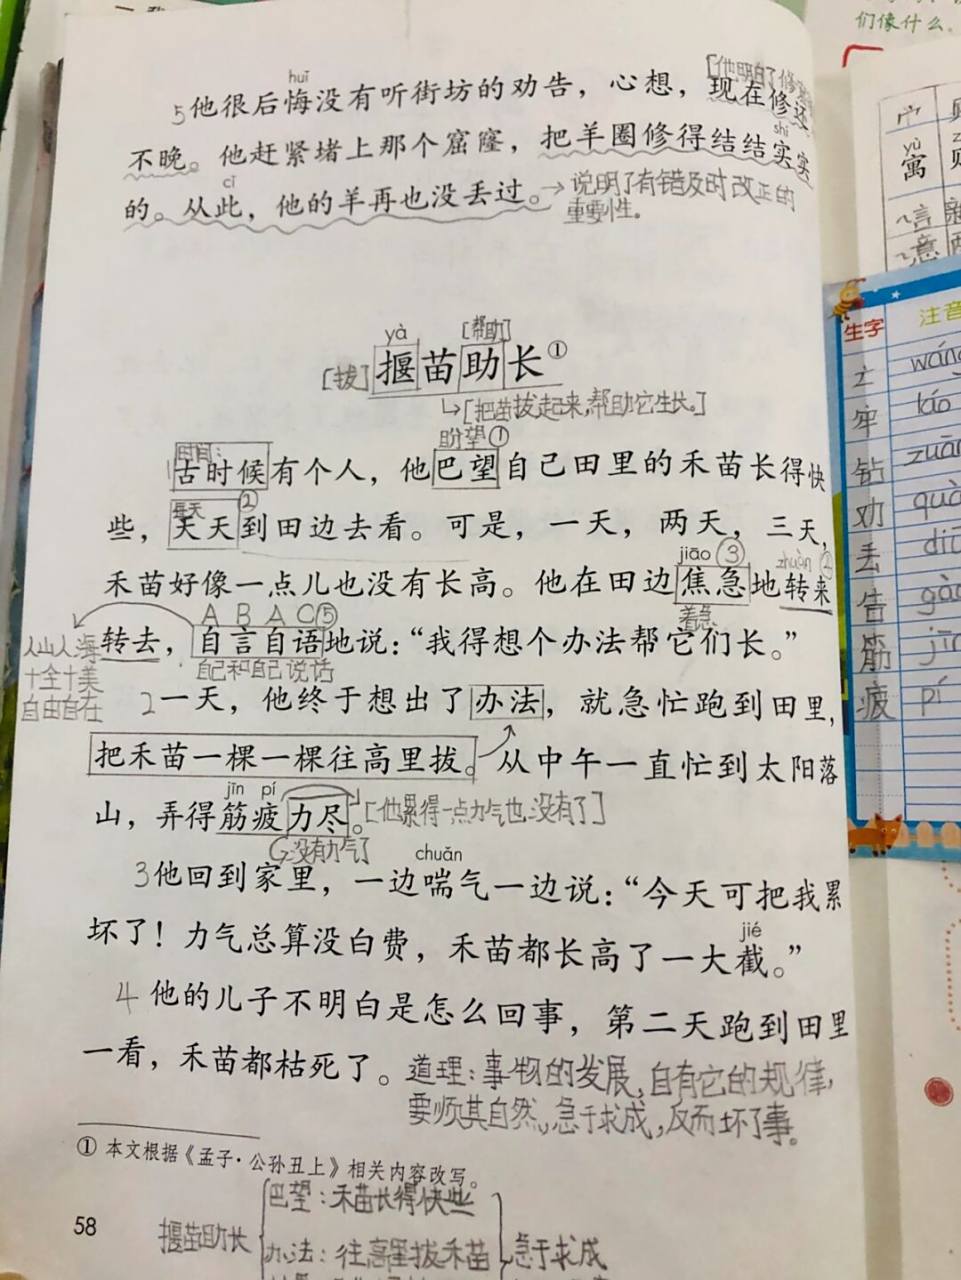 们像什么。
huǐ
[他明白了修
5他很后悔没有听街坊的劝告，心想，现在修还
shí
不晚。他赶紧堵上那个窟窿，把羊圈修得结结实实
cǐ
的。从此，他的羊再也没丢过。→说明了有错及时改正的
重要性。
yà [帮助]
[拔]揠苗助长①
↳[把苗拔起来,帮助它生长。]
时间: 盼望①
1古时候有个人，他巴望自己田里的禾苗长得快
每天 ②
些，天天到田边去看。可是，一天，两天，三天，
jiāo ③ zhuàn ②
禾苗好像一点儿也没有长高。他在田边焦急地转来
A B A C ⑤ 着急
人山人海 转去，自言自语地说：“我得想个办法帮它们长。”
十全十美 自己和自己说话
自由自在
2一天，他终于想出了办法，就急忙跑到田里，
把禾苗一棵一棵往高里拔。从中午一直忙到太阳落
jīn pí
山，弄得筋疲力尽。[他累得一点力气也没有了]
没有力气了
chuǎn
3他回到家里，一边喘气一边说：“今天可把我累
jié
坏了！力气总算没白费，禾苗都长高了一大截。”
4他的儿子不明白是怎么回事，第二天跑到田里
一看，禾苗都枯死了。道理:事物的发展,自有它的规律,
要顺其自然,急于求成,反而坏了事。
① 本文根据《孟子·公孙丑上》相关内容改写。
巴望：禾苗长得快些
58
揠苗助长
办法：往高里拔禾苗 急于求成
yù
寓
言
意
生字 注音
牢
钻 zuān
劝
丢
告
筋
疲 pí